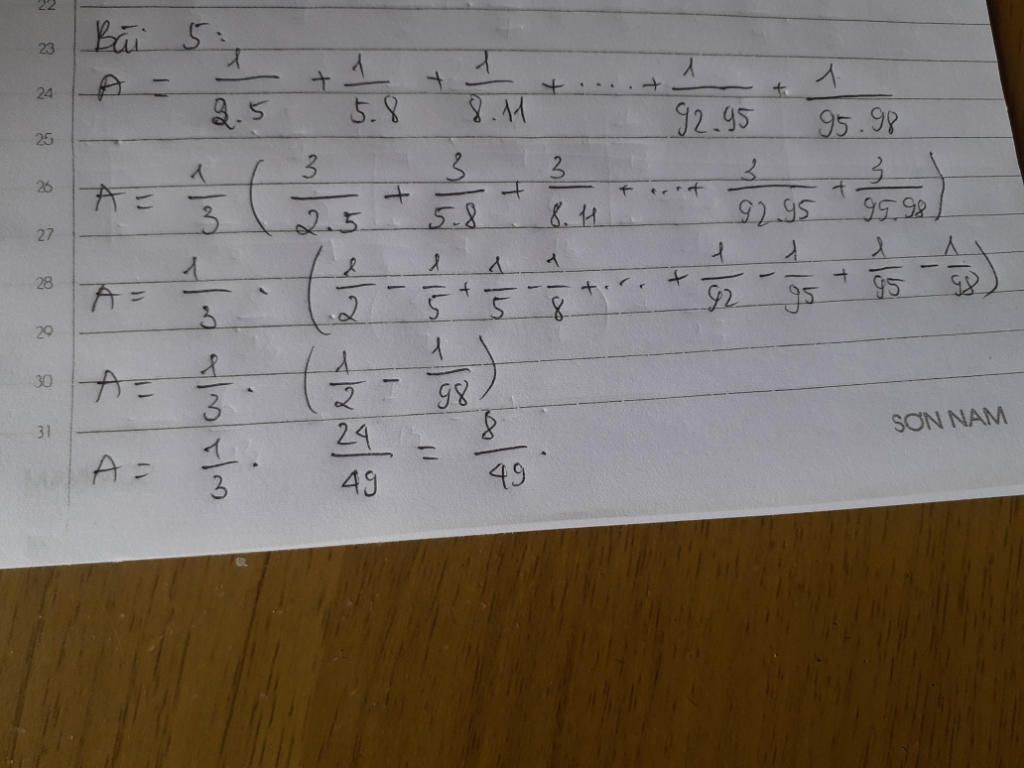 22
Bài 5:
23
24 A = 1/2.5 + 1/5.8 + 1/8.11 + ..... + 1/92.95 + 1/95.98
25
26 A = 1/3 ( 3/2.5 + 3/5.8 + 3/8.11 + ....+ 3/92.95 + 3/95.98 )
27
28 A = 1/3 . ( 1/2 - 1/5 + 1/5 - 1/8 + ... + 1/92 - 1/95 + 1/95 - 1/98 )
29
30 A = 1/3 . ( 1/2 - 1/98 )
31
SƠN NAM
A = 1/3 . 24/49 = 8/49 .